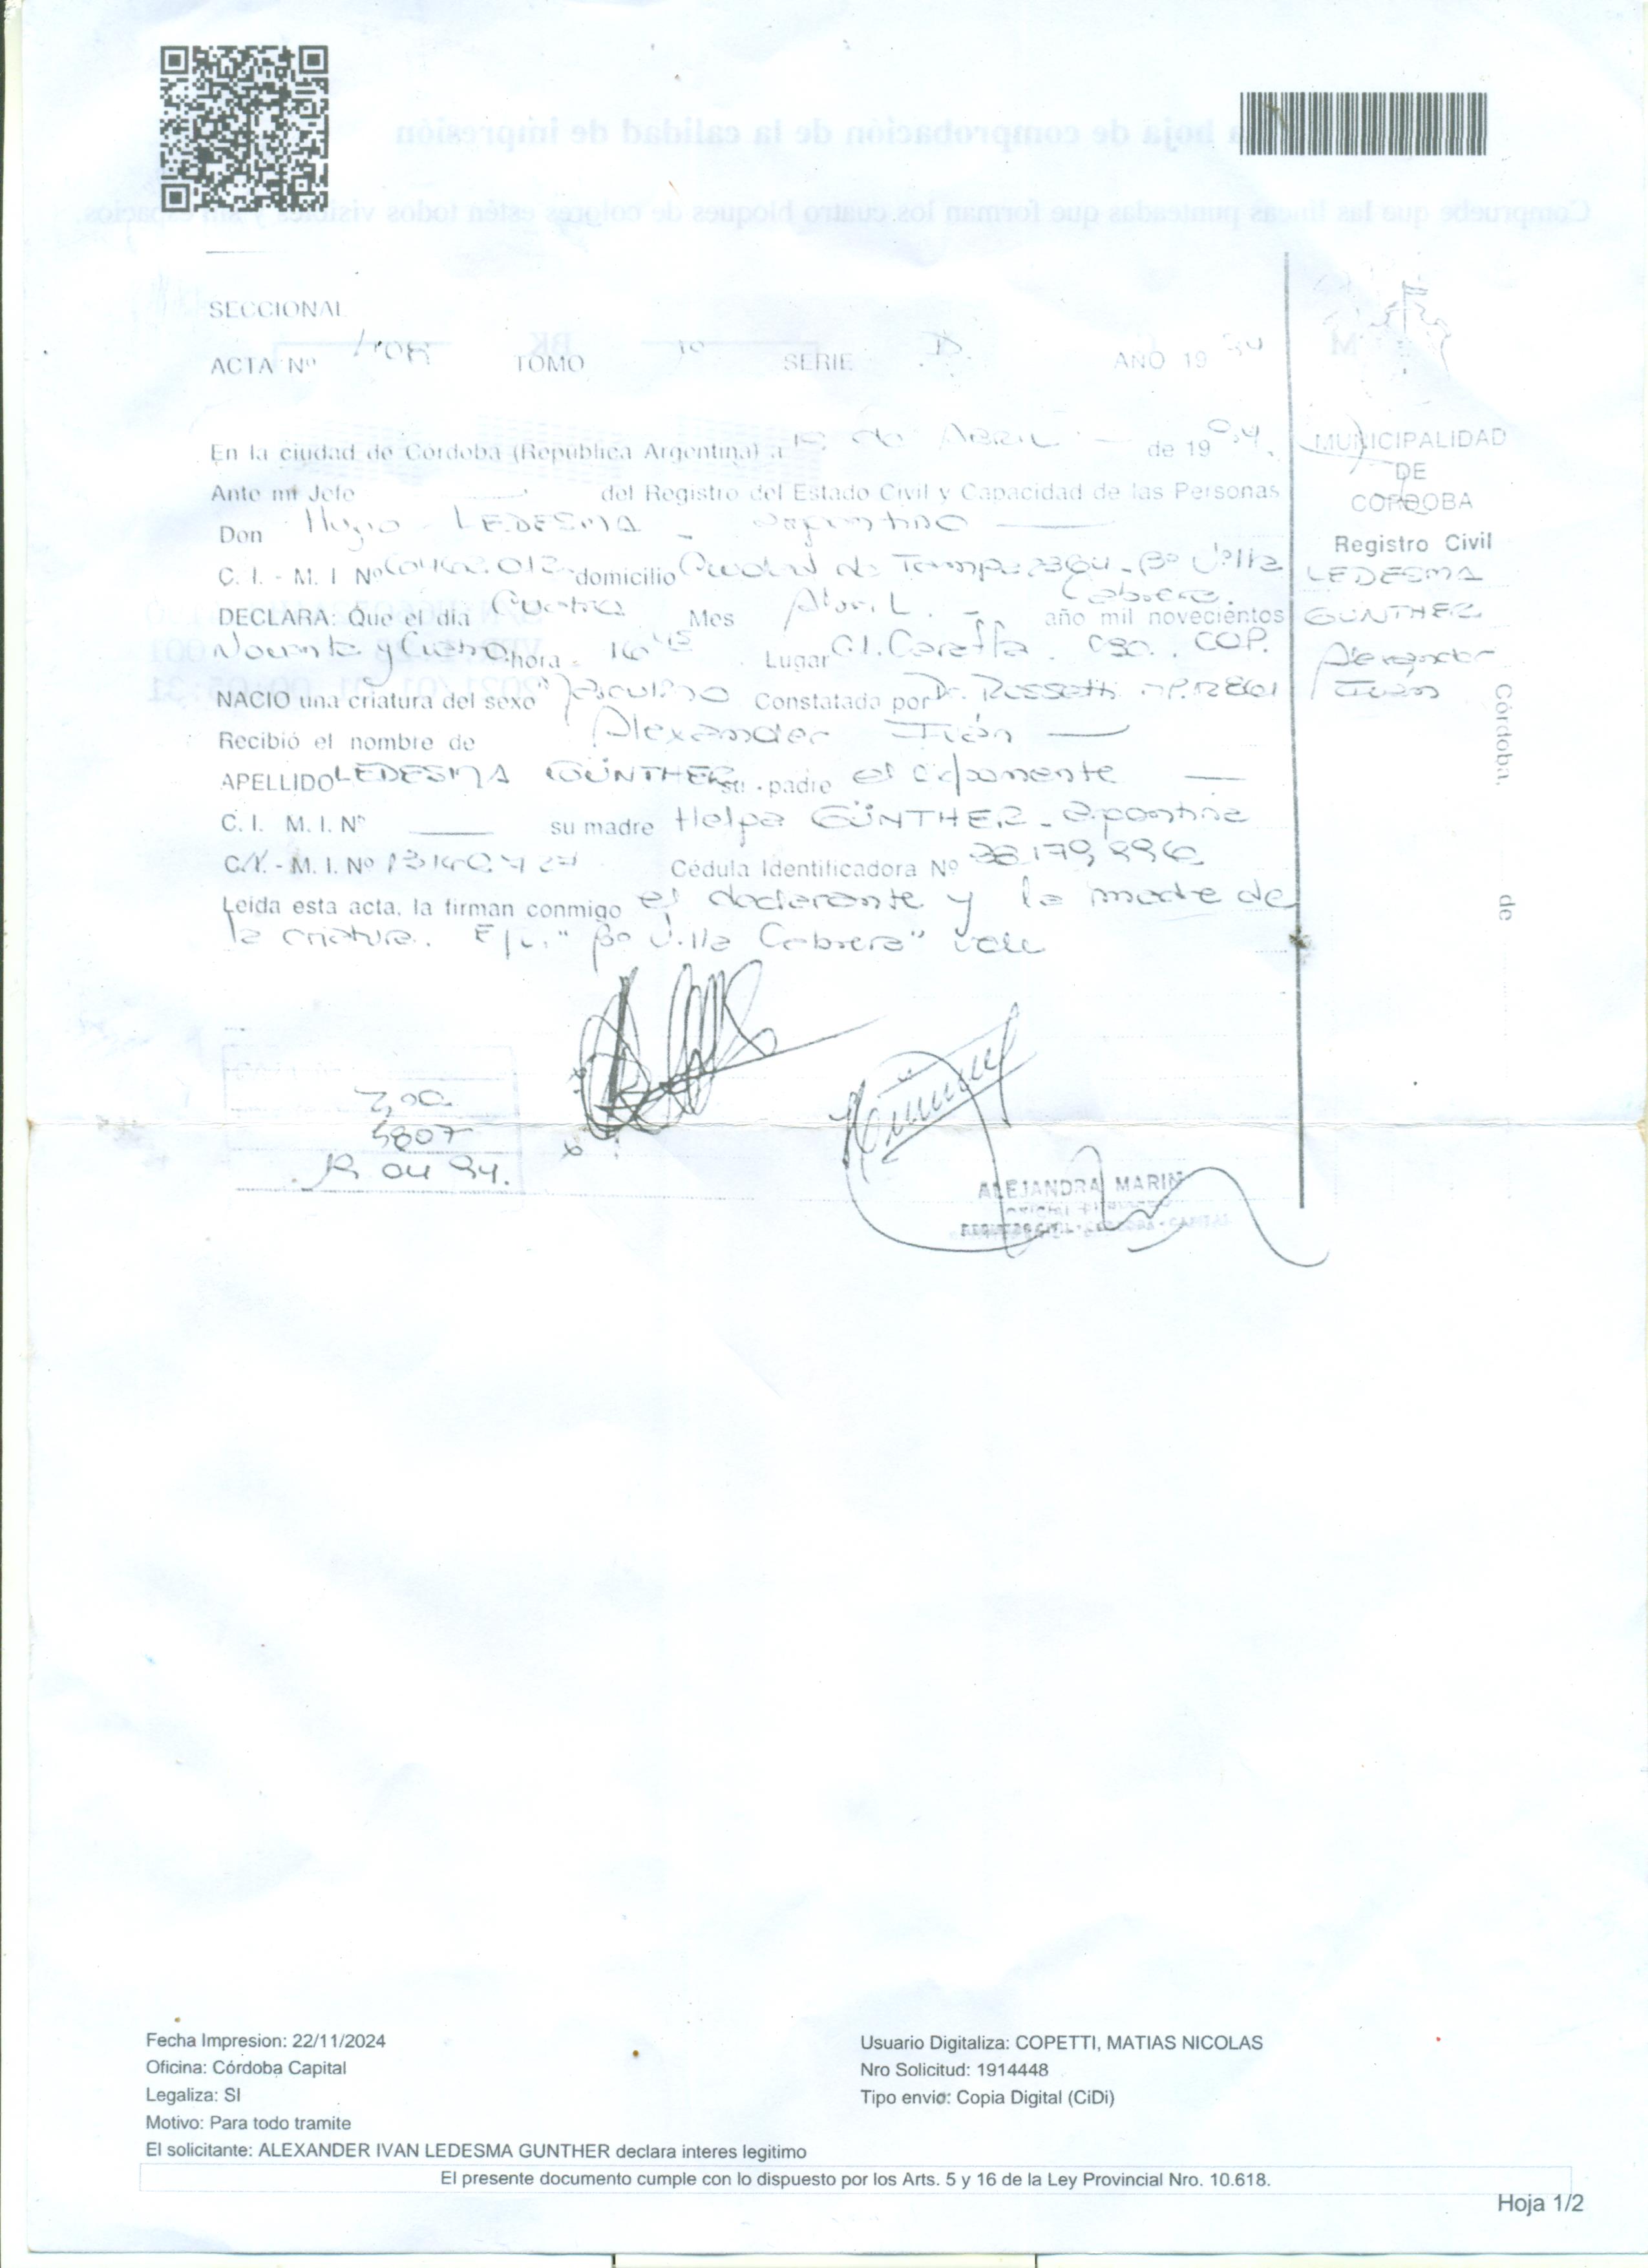 SECCIONAL
ACTA Nº TOMO 10 SERIE D. AÑO 19 94
En la ciudad de Córdoba (República Argentina) a de ABRIL de 19 94.
Ante mi Jefe del Registro del Estado Civil y Capacidad de las Personas
Don Hugo LEDESMA - argentino
C. I. - M. I Nº domicilio Ciudad de Tampa 2364 - Bº Villa
Cabrera.
DECLARA: Que el día Cuatro Mes Abril - año mil novecientos
Noventa y Cuatro hora - 16 45 Lugar Caraffa COP.
NACIO una criatura del sexo Masculino Constatada por Dr. Rossetti MP.12861
Recibió el nombre de Alexander Iván
APELLIDO LEDESMA GÜNTHER su padre el exponente
C. I. M. I. Nº su madre Helga GÜNTHER - argentina
C.I. - M. I. Nº Cédula Identificadora Nº
Leída esta acta, la firman conmigo el declarante y la madre de
la criatura. E/L: "Bº Villa Cabrera" vale
MUNICIPALIDAD
DE
CORDOBA
Registro Civil
LEDESMA
GÜNTHER
Alexander
Iván
Córdoba, de
5807
04 94.
ALEJANDRA MARIN
REGISTRO CIVIL - CORDOBA - CAPITAL
Fecha Impresion: 22/11/2024
Oficina: Córdoba Capital
Legaliza: SI
Motivo: Para todo tramite
El solicitante: ALEXANDER IVAN LEDESMA GUNTHER declara interes legitimo
Usuario Digitaliza: COPETTI, MATIAS NICOLAS
Nro Solicitud: 1914448
Tipo envio: Copia Digital (CiDi)
El presente documento cumple con lo dispuesto por los Arts. 5 y 16 de la Ley Provincial Nro. 10.618.
Hoja 1/2